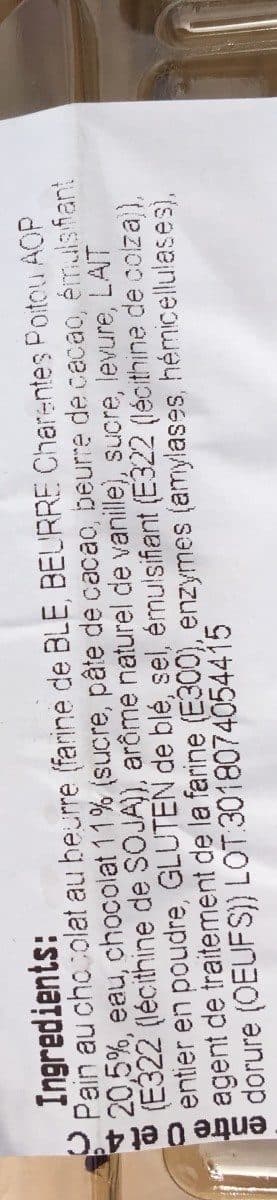 Ingredients:
Pain au chocolat au beurre (farine de BLE, BEURRE Charentes Poitou AOP
20,5%, eau, chocolat 11% (sucre, pâte de cacao, beurre de cacao, émulsifiant
(E322 (lécithine de SOJA)), arôme naturel de vanille), sucre, levure, LAIT
entier en poudre, GLUTEN de blé, sel, émulsifiant (E322 (lécithine de colza)),
agent de traitement de la farine (E300), enzymes (amylases, hémicellulases),
dorure (OEUFS)) LOT:3018074054415
entre 0 et 4°C